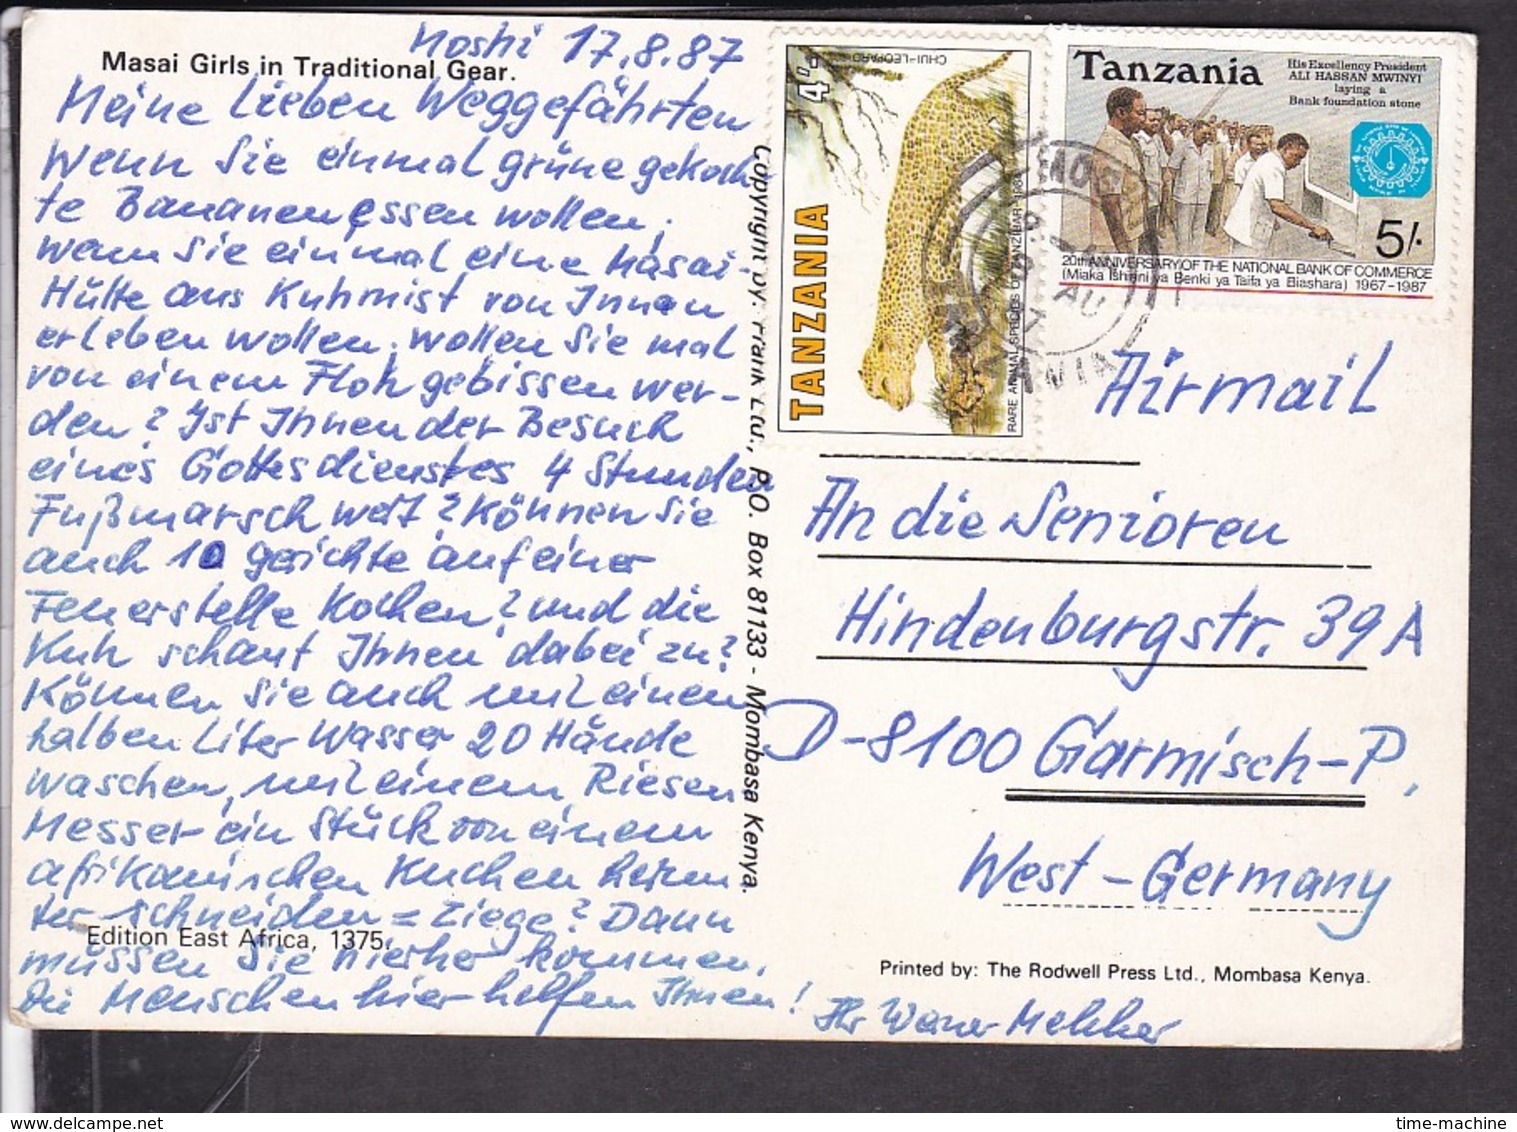 Masai Girls in Traditional Gear.
Moshi 17.8.87
Meine Lieben Weggefährten
Wenn Sie einmal grüne gekoch-
te Bananen essen wollen,
wenn Sie einmal eine Masai-
Hütte aus Kuhmist von Innen
erleben wollen, wollen Sie mal
von einem Floh gebissen wer-
den? Ist Ihnen der Besuch
eines Gottesdienstes 4 Stunden
Fußmarsch wert? Können Sie
auch 10 gerichte auf einer
Feuerstelle Kochen? und die
Kuh schaut Ihnen dabei zu?
Können Sie auch mit einem
halben Liter Wasser 20 Hände
waschen, mit einem Riesen
Messer ein Stück von einem
afrikanischen Kuchen herun
ter schneiden = Ziege? Dann
müssen Sie hierher kommen.
Die Menschen hier helfen Ihnen!
Ihr Werner
Edition East Africa, 1375.
Copyright by: Frank Ltd., P.O. Box 81133 - Mombasa Kenya.
TANZANIA
4/-
CHUI-LEOPARD
RARE ANIMAL SPECIES OF ZANZIBAR
Tanzania
His Excellency President
ALI HASSAN MWINYI
laying a
Bank foundation stone
5/-
20th ANNIVERSARY OF THE NATIONAL BANK OF COMMERCE
(Miaka Ishirini ya Benki ya Taifa ya Biashara) 1967-1987
AU
Airmail
An die Senioren
Hindenburgstr. 39A
D-8100 Garmisch-P.
West-Germany
Printed by: The Rodwell Press Ltd., Mombasa Kenya.
time-machine